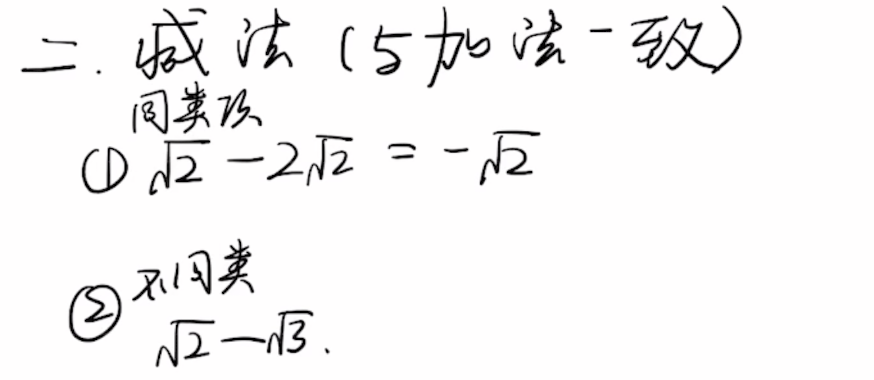 二. 减法 (与加法一致)
同类项
① √2 - 2√2 = -√2
不同类
② √2 - √3.